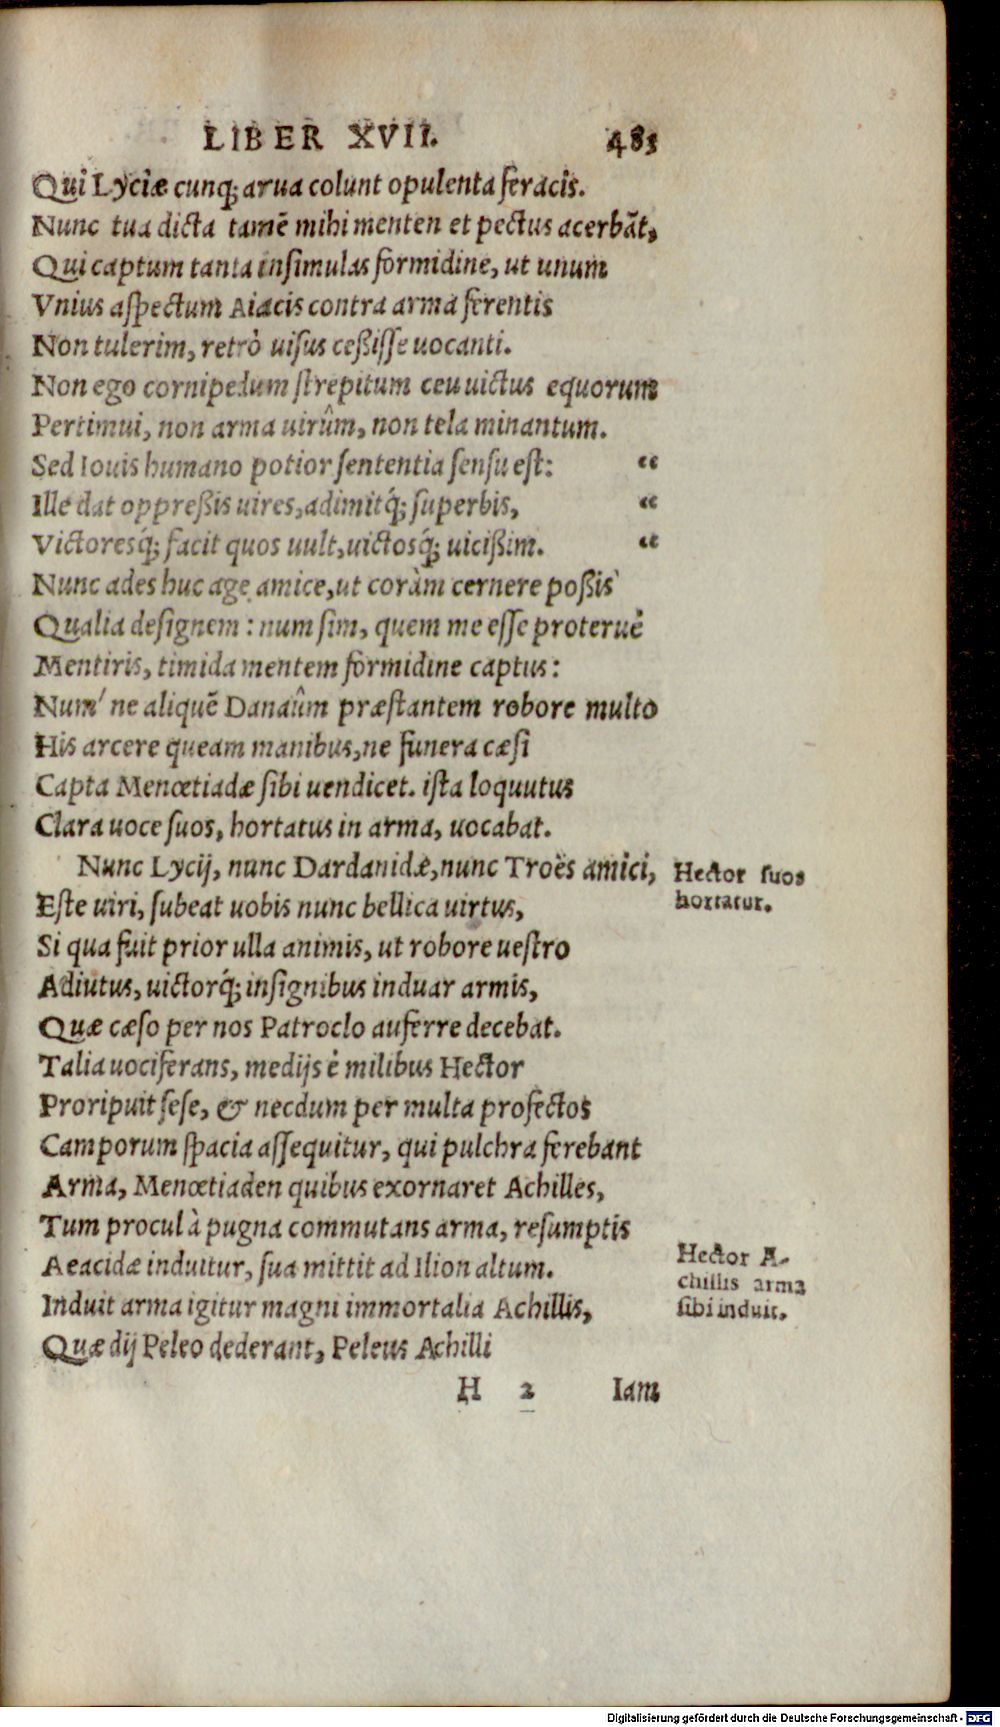 LIBER XVII. 483
Qui Lyciæ cunq; arua colunt opulenta feracis.
Nunc tua dicta tamẽ mihi menten et pectus acerbãt,
Qui captum tanta insimulas formidine, ut unum
Vnius aspectum Aiacis contra arma ferentis
Non tulerim, retrò uisus ceßisse uocanti.
Non ego cornipedum strepitum ceu uictus equorum
Pertimui, non arma uirûm, non tela minantum.
Sed Iouis humano potior sententia sensu est: “
Ille dat oppreßis uires, adimitq́; superbis, “
Victoresq́; facit quos uult, uictosq́; uicißim. “
Nunc ades huc age amice, ut coràm cernere poßis
Qualia designem: num sim, quem me esse proteruè
Mentiris, timida mentem formidine captus:
Num' ne aliquẽ Danaûm præstantem robore multo
His arcere queam manibus, ne funera cæsi
Capta Menœtiadæ sibi uendicet. ista loquutus
Clara uoce suos, hortatus in arma, uocabat.
Nunc Lycij, nunc Dardanidæ, nunc Troës amici,
Hector suos
hortatur.
Este uiri, subeat uobis nunc bellica uirtus,
Si qua fuit prior ulla animis, ut robore uestro
Adiutus, uictorq́; insignibus induar armis,
Quæ cæso per nos Patroclo auferre decebat.
Talia uociferans, medijs è milibus Hector
Proripuit sese, & necdum per multa profectos
Camporum spacia assequitur, qui pulchra ferebant
Arma, Menœtiaden quibus exornaret Achilles,
Tum procul à pugna commutans arma, resumptis
Aeacidæ induitur, sua mittit ad Ilion altum.
Hector A-
chillis arma
sibi induit.
Induit arma igitur magni immortalia Achillis,
Quæ dij Peleo dederant, Peleus Achilli
H 2 Iam
Digitalisierung gefördert durch die Deutsche Forschungsgemeinschaft - DFG